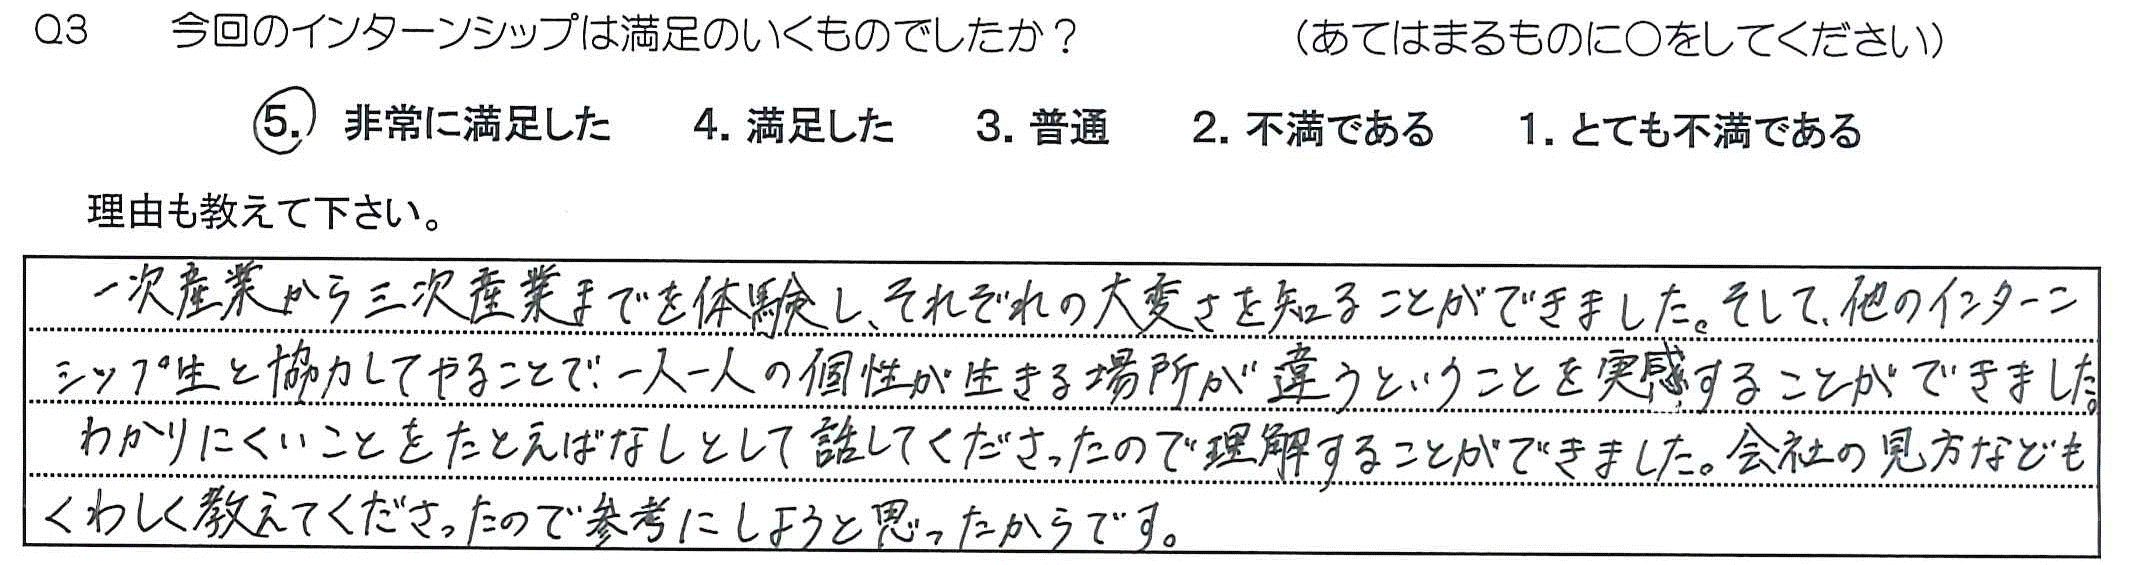 Q3 今回のインターンシップは満足のいくものでしたか？ （あてはまるものに○をしてください）
5. 非常に満足した 4. 満足した 3. 普通 2. 不満である 1. とても不満である
理由も教えて下さい。
一次産業から三次産業までを体験し、それぞれの大変さを知ることができました。そして、他のインターン
シップ生と協力してやることで、一人一人の個性が生きる場所が違うということを実感することができました。
わかりにくいことをたとえばなしとして話してくださったので理解することができました。会社の見方なども
くわしく教えてくださったので参考にしようと思ったからです。